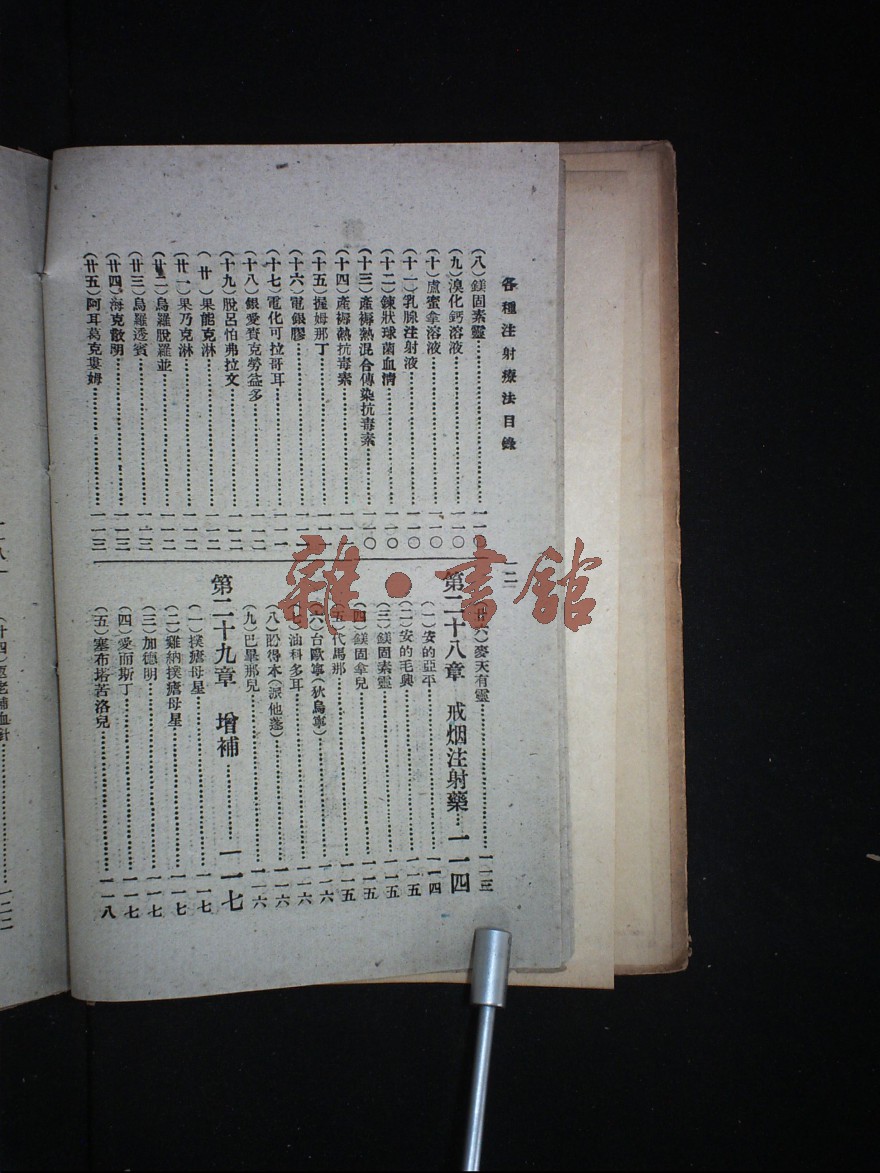 各種注射療法目錄
一二
(八)鎂固素靈……一一〇
(九)溴化鈣溶液……一一〇
(十)盧蜜拿溶液……一一〇
(十一)乳腺注射液……一一〇
(十二)鍊狀球菌血清……一一〇
(十三)產褥熱混合傳染抗毒素……一一〇
(十四)產褥熱抗毒素……一一一
(十五)握姆那丁……一一一
(十六)電銀膠……一一一
(十七)電化可拉哥耳……一一一
(十八)銀愛賚克勞益多……一一二
(十九)脫呂怕弗拉文……一一二
(廿)果能克淋……一一二
(廿一)果乃克淋……一一二
(廿二)烏羅脫羅並……一一二
(廿三)烏羅透賓……一一三
(廿四)海克散明……一一三
(廿五)阿耳葛克婁姆……一一三
(廿六)麥天有靈……一一三
第二十八章 戒烟注射藥…一一四
(一)安的亞平……一一四
(二)安的毛興……一一五
(三)鎂固素靈……一一五
(四)鎂固拿兒……一一五
(五)代馬那……一一五
(六)台歐寧(狄烏寧)……一一六
(七)油科多耳……一一六
(八)盼得本(派他蓬)……一一六
(九)巴畢那兒……一一六
第二十九章 增補……一一七
(一)撲瘧母星……一一七
(二)雞納撲瘧母星……一一七
(三)加德明……一一七
(四)愛而斯丁……一一七
(五)塞布塔苦洛兒……一一八
雜·書館